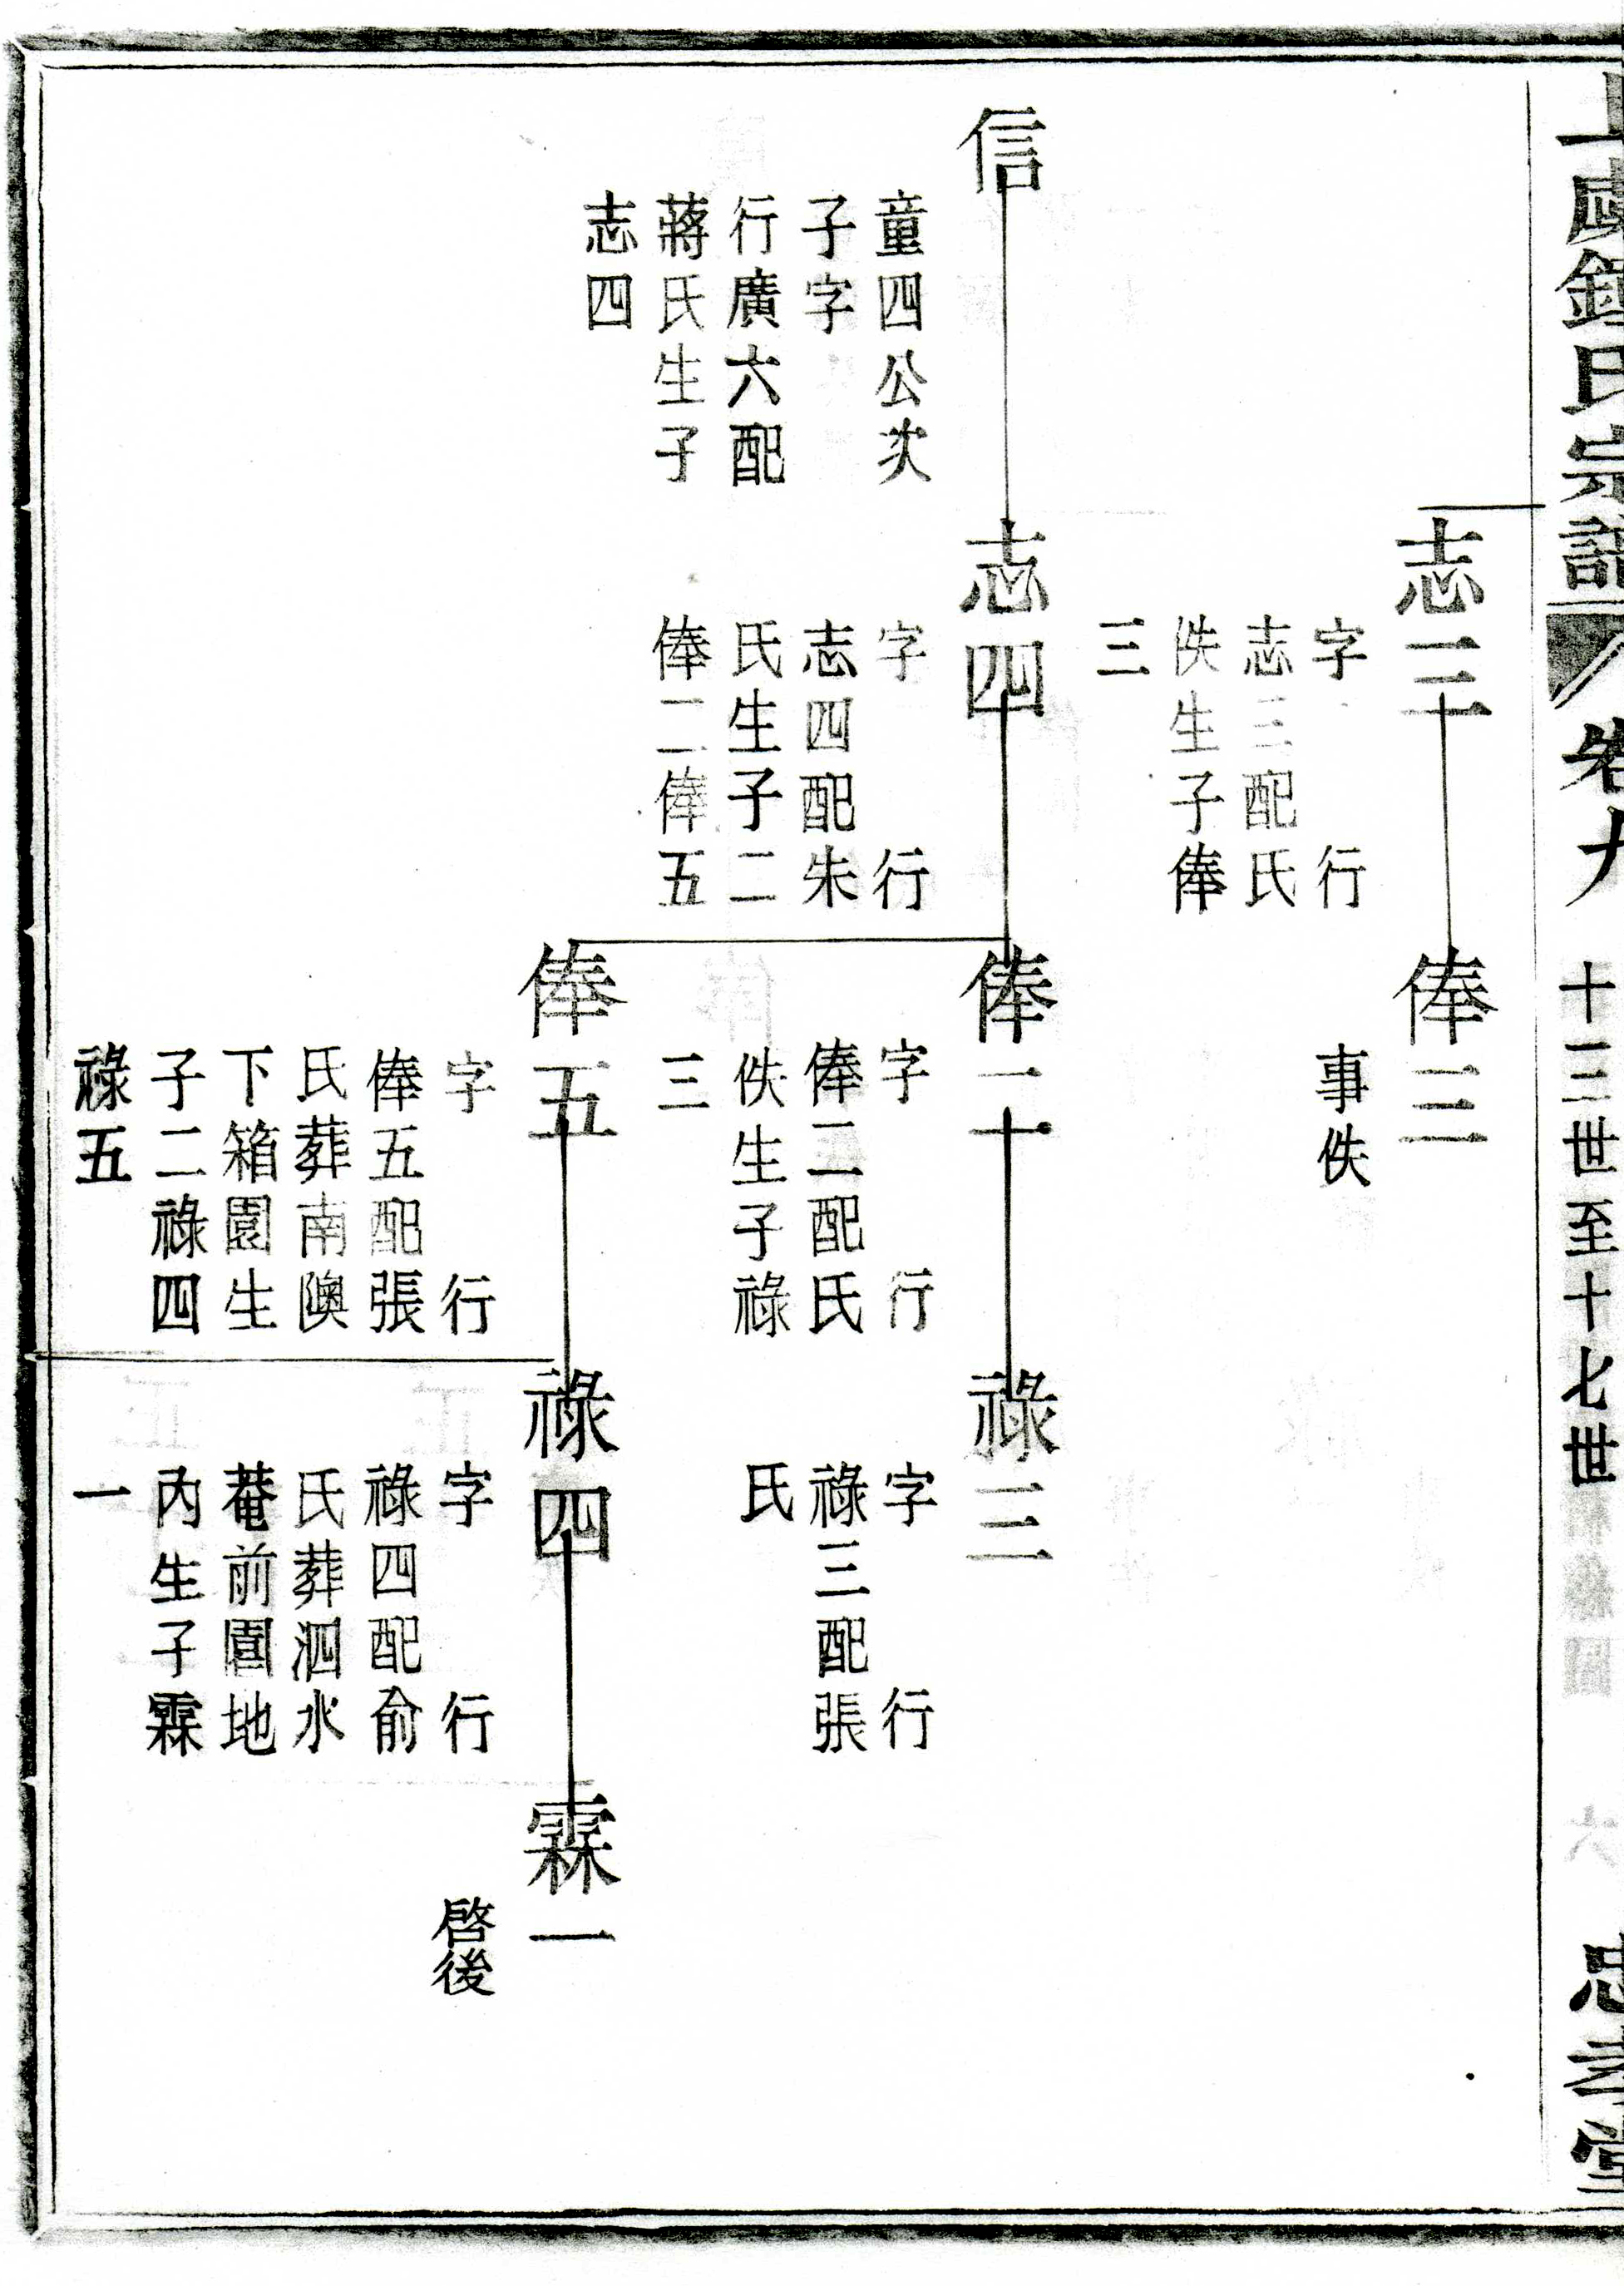 氏宗譜
卷九
十三世至十七世
六
忠孝堂
志三
字 行
志三配氏
佚生子俸
三
俸三
事佚
信
童四公次
子字
行廣六配
蔣氏生子
志四
志四
字 行
志四配朱
氏生子二
俸二俸五
俸二
字 行
俸二配氏
佚生子祿
三
祿三
字 行
祿三配張
氏
俸五
字 行
俸五配張
氏葬南隩
下箱園生
子二祿四
祿五
祿四
字 行
祿四配俞
氏葬泗水
菴前園地
內生子霖
一
霖一
啓後